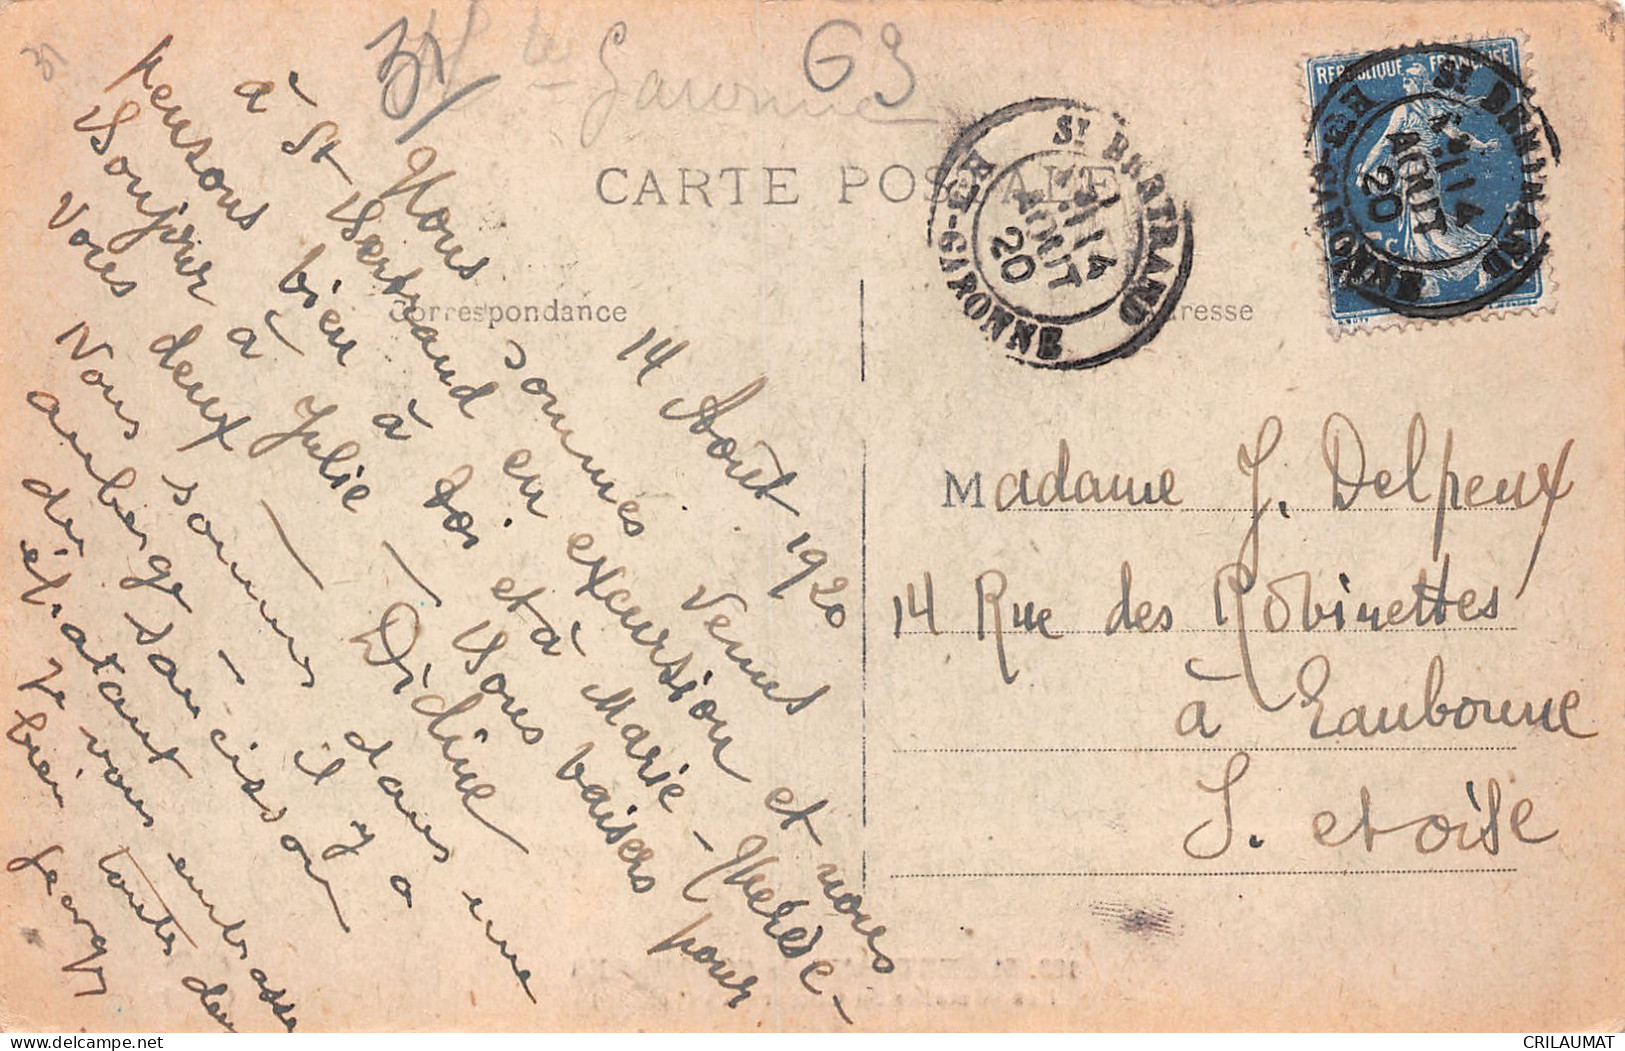 31
31
Hte Garonne
G3
CARTE POSTALE
Correspondance
Adresse
REPUBLIQUE FRANÇAISE
ST BERTRAND
14
AOUT
20
HTE-GARONNE
ST BERTRAND
14
AOUT
20
HTE-GARONNE
14 Août 1920
Nous sommes venus
à St Bertrand en excursion et nous
pensons bien à toi et à Marie-Thérèse -
Bonjour à Julie - Bons baisers pour
vous deux - Didine
Nous sommes dans une
auberge il y a
du saucisson
épatant
Je vous embrasse
bien toutes deux
Georges
Madame J. Delpeux
14 Rue des Robinettes
à Eaubonne
S. et Oise
CRILAUMAT